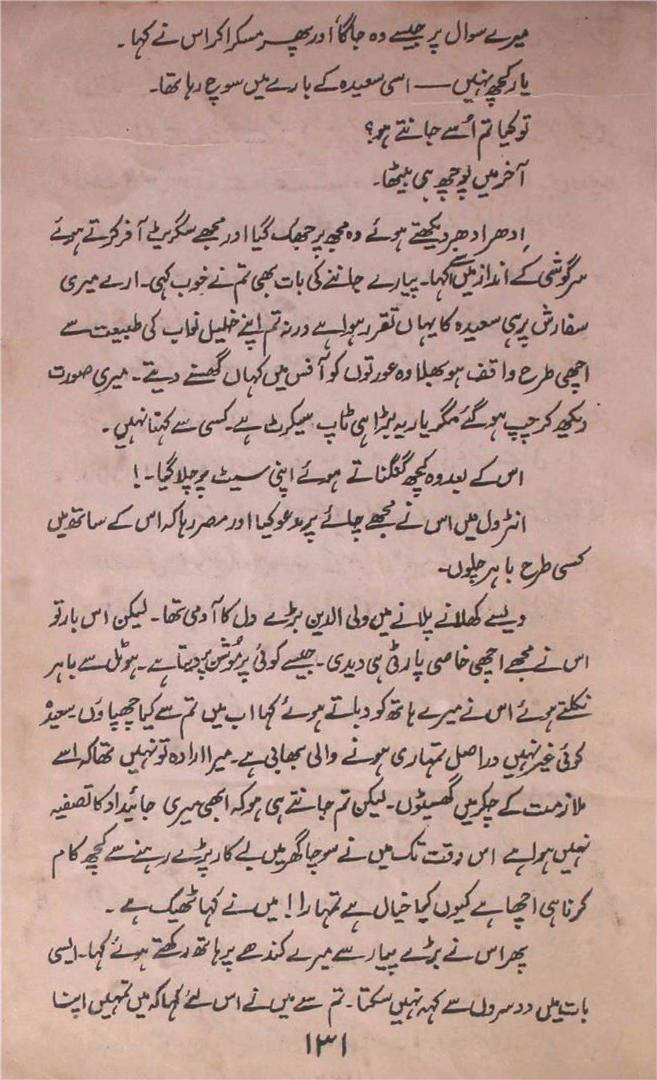 میرے سوال پر جیسے وہ جاگا اور پھر مسکرا کر اس نے کہا۔
یار کچھ نہیں — اسی سعیدہ کے بارے میں سوچ رہا تھا۔
تو کیا تم اُسے جانتے ہو؟
آخر میں پوچھ ہی بیٹھا۔
اِدھر ادھر دیکھتے ہوئے وہ مجھ پر جھک گیا اور مجھے سگریٹ آفر کرتے ہوئے
سرگوشی کے انداز میں کہا۔ پیارے جاننے کی بات بھی تم نے خوب کہی۔ ارے میری
سفارش پر ہی سعیدہ کا یہاں تقرر ہوا ہے ورنہ تم اپنے خلیل نواب کی طبیعت سے
اچھی طرح واقف ہو بھلا وہ عورتوں کو آفس میں کہاں گھسنے دیتے۔ میری صورت
دیکھ کر چپ ہو گئے مگر یار یہ بڑا ہی ٹاپ سیکرٹ ہے۔ کسی سے کہنا نہیں۔
اس کے بعد وہ کچھ گنگناتے ہوئے اپنی سیٹ پر چلا گیا۔!
انٹرول میں اس نے مجھے چائے پر مدعو کیا اور مصر رہا کہ اس کے ساتھ میں
کسی طرح باہر چلوں۔
ویسے کھلانے پلانے میں ولی الدین بڑے دل کا آدمی تھا۔ لیکن اس بار تو
اس نے مجھے اچھی خاصی پارٹی ہی دیدی۔ جیسے کوئی پرموشن پر دیتا ہے۔ ہوٹل سے باہر
نکلتے ہوئے اس نے میرے ہاتھ کو دباتے ہوئے کہا اب میں تم سے کیا چھپاؤں۔ سعیدہ
کوئی غیر نہیں دراصل تمہاری ہونے والی بھابی ہے۔ میرا ارادہ تو نہیں تھا کہ اسے
ملازمت کے چکر میں گھسیٹوں۔ لیکن تم جانتے ہی ہو کہ ابھی میری جائیداد کا تصفیہ
نہیں ہوا ہے اس وقت تک میں نے سوچا گھر میں بے کار پڑے رہنے سے کچھ کام
کرنا ہی اچھا ہے کیوں کیا خیال ہے تمہارا! میں نے کہا ٹھیک ہے۔
پھر اس نے بڑے پیار سے میرے کندھے پر ہاتھ رکھتے ہوئے کہا۔ ایسی
بات میں دوسروں سے کہہ نہیں سکتا۔ تم سے میں نے اس لئے کہا کہ میں تمہیں اپنا
۱۳۱